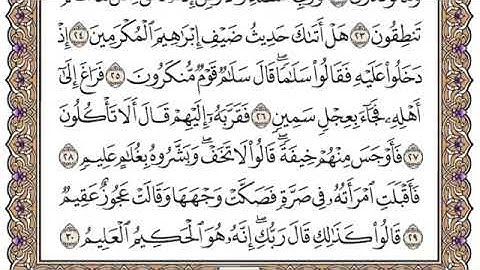 تَنطِقُونَ ﴿٢٣﴾ هَلْ أَتَىٰكَ حَدِيثُ ضَيْفِ إِبْرَٰهِيمَ ٱلْمُكْرَمِينَ ﴿٢٤﴾ إِذْ
دَخَلُوا۟ عَلَيْهِ فَقَالُوا۟ سَلَٰمًا ۖ قَالَ سَلَٰمٌ قَوْمٌ مُّنكَرُونَ ﴿٢٥﴾ فَرَاغَ إِلَىٰٓ
أَهْلِهِۦ فَجَآءَ بِعِجْلٍ سَمِينٍ ﴿٢٦﴾ فَقَرَّبَهُۥٓ إِلَيْهِمْ قَالَ أَلَا تَأْكُلُونَ
﴿٢٧﴾ فَأَوْجَسَ مِنْهُمْ خِيفَةً ۖ قَالُوا۟ لَا تَخَفْ ۖ وَبَشَّرُوهُ بِغُلَٰمٍ عَلِيمٍ ﴿٢٨﴾
فَأَقْبَلَتِ ٱمْرَأَتُهُۥ فِى صَرَّةٍ فَصَكَّتْ وَجْهَهَا وَقَالَتْ عَجُوزٌ عَقِيمٌ
﴿٢٩﴾ قَالُوا۟ كَذَٰلِكِ قَالَ رَبُّكِ ۖ إِنَّهُۥ هُوَ ٱلْحَكِيمُ ٱلْعَلِيمُ ﴿٣٠﴾